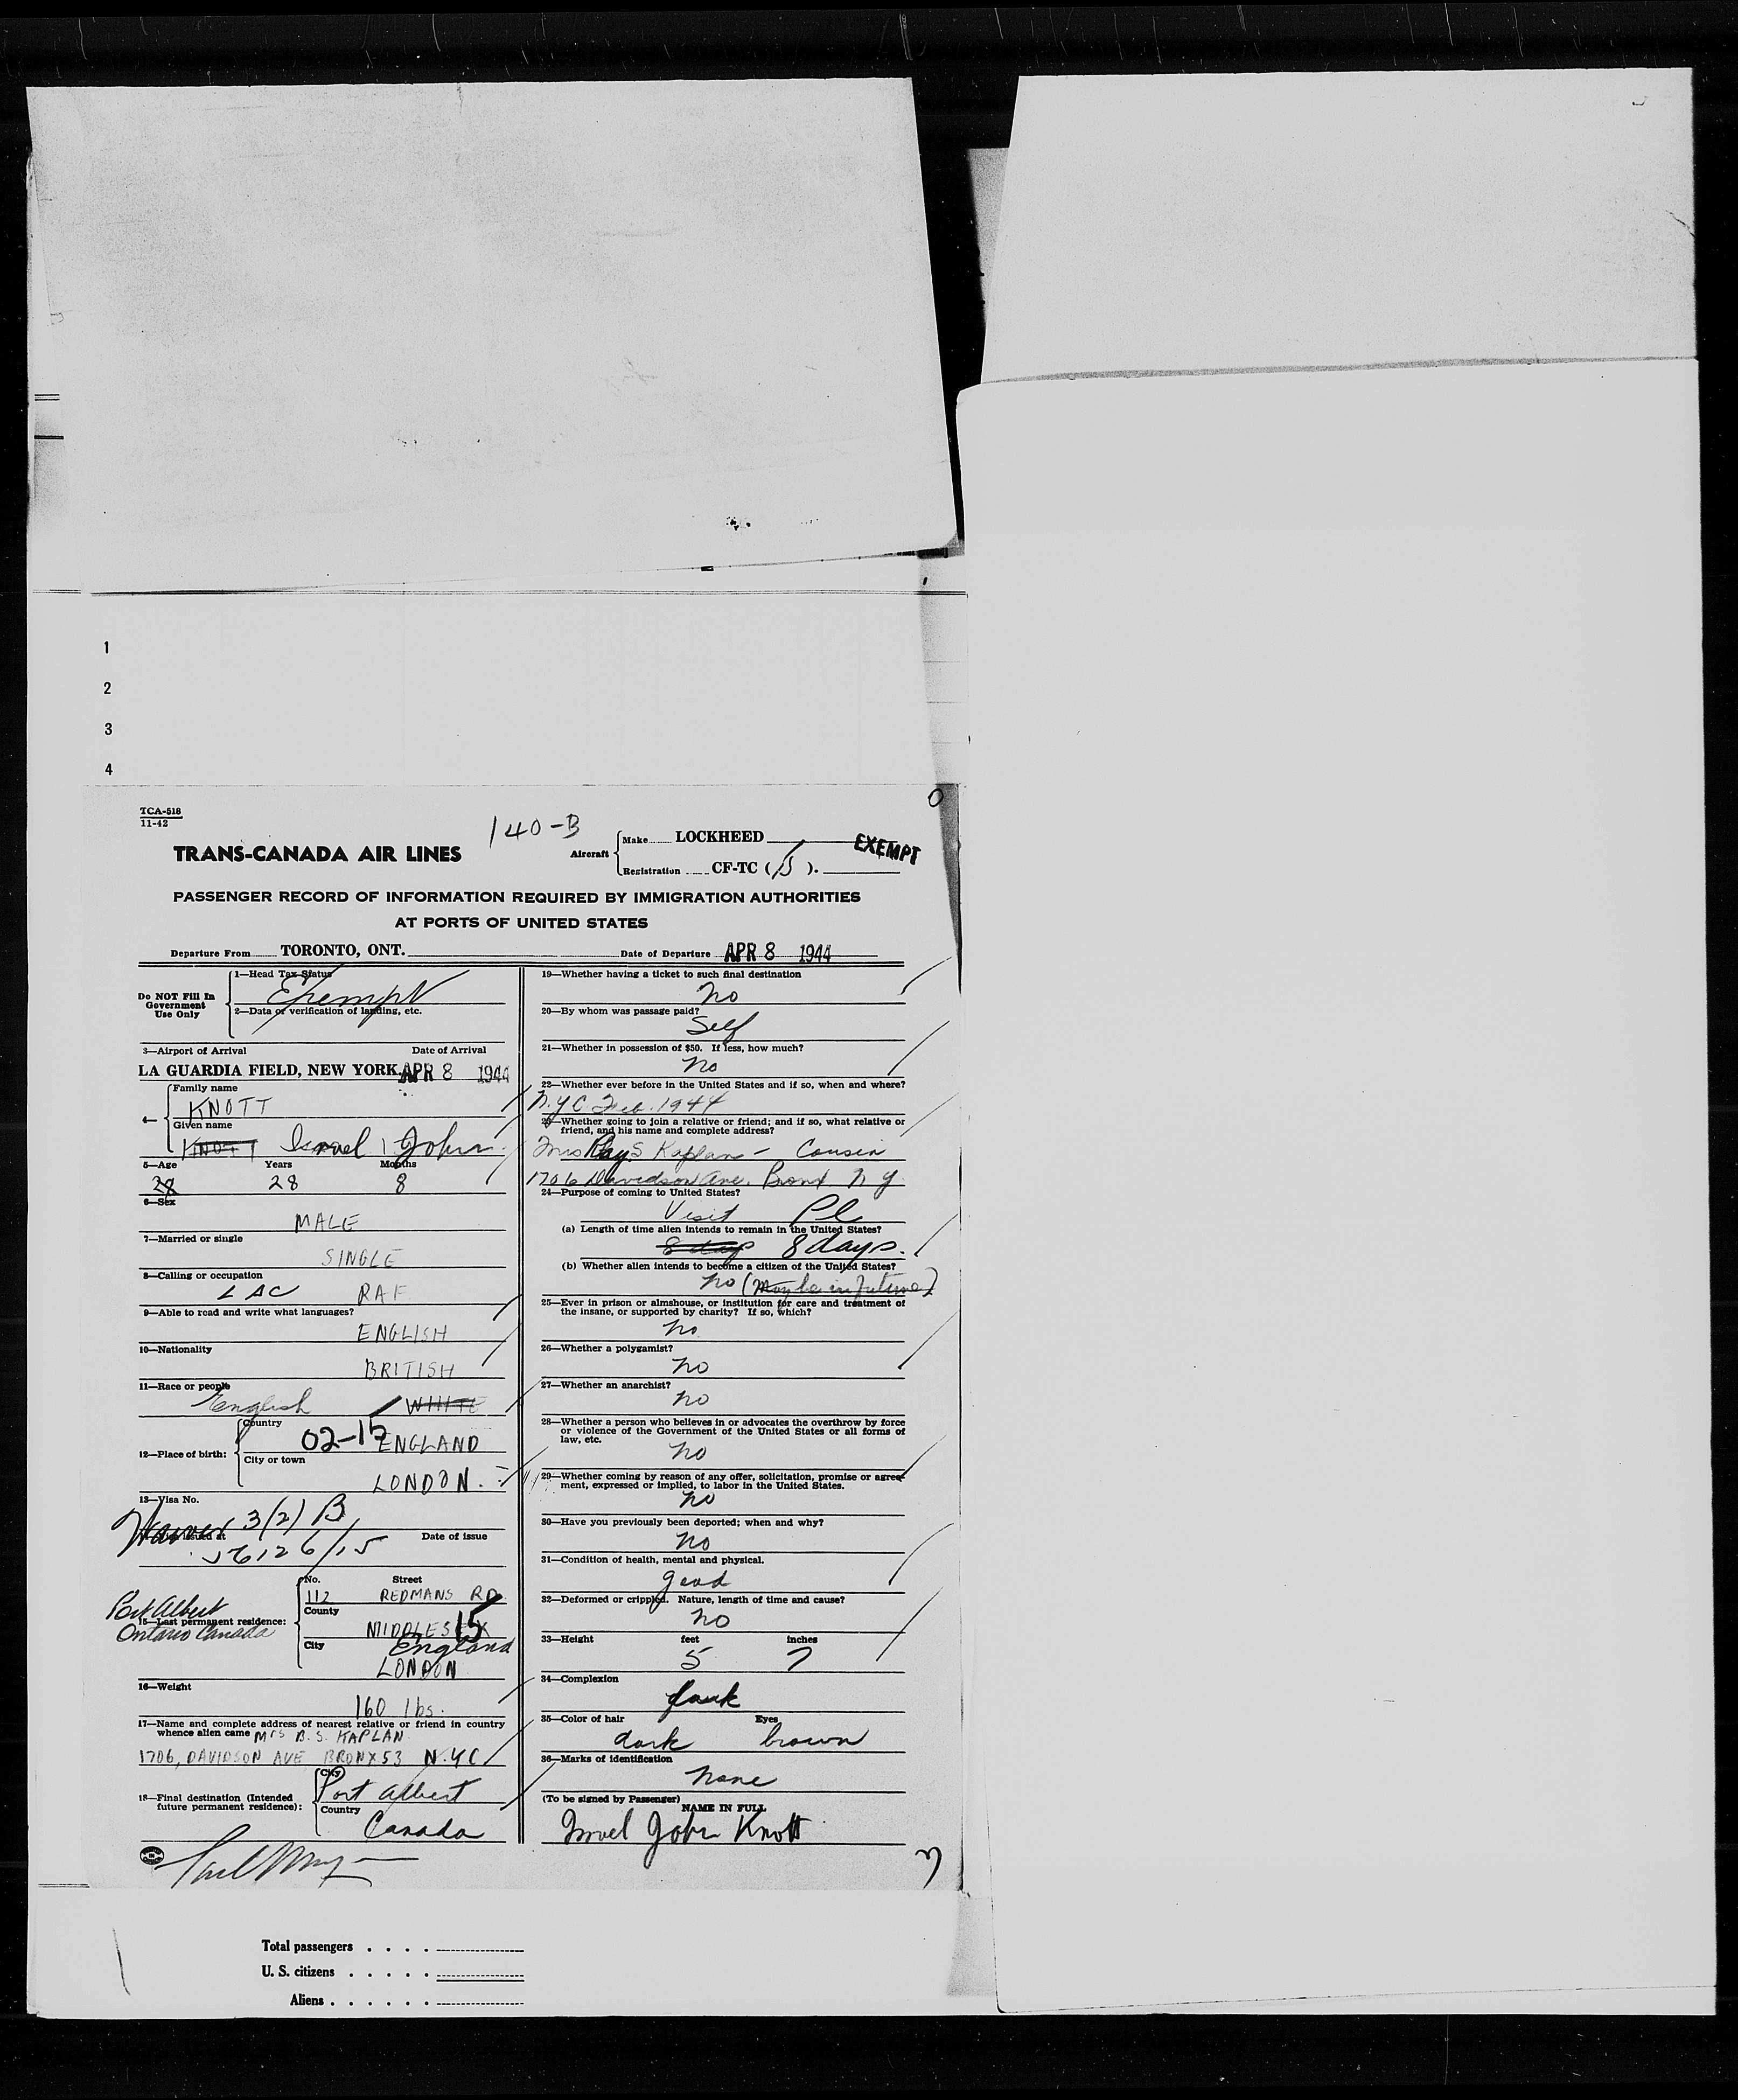 1
2
3
4
TCA-518
11-42
140-B
TRANS-CANADA AIR LINES
Aircraft
Make LOCKHEED
Registration CF-TC ( ).
EXEMPT
PASSENGER RECORD OF INFORMATION REQUIRED BY IMMIGRATION AUTHORITIES
AT PORTS OF UNITED STATES
Departure From TORONTO, ONT. Date of Departure APR 8 1944
Do NOT Fill In Government Use Only
1—Head Tax Status
Exempt
2—Data or verification of landing, etc.
3—Airport of Arrival Date of Arrival
LA GUARDIA FIELD, NEW YORK. APR 8 1944
4—
Family name
KNOTT
Given name
KNOTT Israel John
5—Age Years Months
28 28 8
6—Sex
MALE
7—Married or single
SINGLE
8—Calling or occupation
LAC RAF
9—Able to read and write what languages?
ENGLISH
10—Nationality
BRITISH
11—Race or people
English WHITE
12—Place of birth:
Country
02-15 ENGLAND
City or town
LONDON.
13—Visa No.
Waiver 3(2) B
issued at Date of issue
56126/15
Port Albert
15—Last permanent residence:
Ontario Canada
No. Street
112 REDMANS RD
County
MIDDLESEX 15
City England
LONDON
16—Weight
160 lbs.
17—Name and complete address of nearest relative or friend in country
whence alien came MRS B. S. KAPLAN
1706, DAVIDSON AVE BRONX 53 N.Y.C
18—Final destination (Intended
future permanent residence):
City
Port Albert
Country
Canada
19—Whether having a ticket to such final destination
No
20—By whom was passage paid?
Self
21—Whether in possession of $50. If less, how much?
No
22—Whether ever before in the United States and if so, when and where?
N.Y.C Feb. 1944
23—Whether going to join a relative or friend; and if so, what relative or
friend, and his name and complete address?
Mrs Ray S Kaplan - Cousin
1706 Davidson Ave. Bronx N Y
24—Purpose of coming to United States?
Visit Pl
(a) Length of time alien intends to remain in the United States?
8 days 8 days.
(b) Whether alien intends to become a citizen of the United States?
No (Maybe in future)
25—Ever in prison or almshouse, or institution for care and treatment of
the insane, or supported by charity? If so, which?
No
26—Whether a polygamist?
No
27—Whether an anarchist?
No
28—Whether a person who believes in or advocates the overthrow by force
or violence of the Government of the United States or all forms of
law, etc.
No
29—Whether coming by reason of any offer, solicitation, promise or agree-
ment, expressed or implied, to labor in the United States.
No
30—Have you previously been deported; when and why?
No
31—Condition of health, mental and physical.
good
32—Deformed or crippled. Nature, length of time and cause?
No
33—Height feet inches
5 7
34—Complexion
dark
35—Color of hair Eyes
dark brown
36—Marks of identification
None
(To be signed by Passenger)
NAME IN FULL
Israel John Knott
Total passengers . . . .
U. S. citizens . . . . .
Aliens . . . . . .